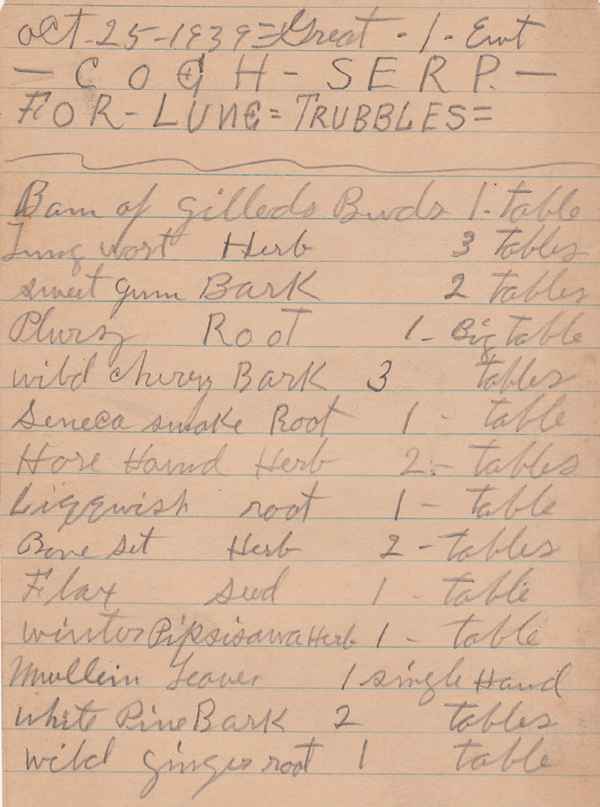 Oct-25-1939=Great-1-Ewt
- COGH-SERP. -
FOR-LUNG=TRUBBLES=
Bam of Gilleds Buds 1-table
Lung wort Herb 3 tables
sweet gum Bark 2 tables
Plursy Root 1-Big table
wild cheryy Bark 3 tables
Seneca snake Root 1- table
Hore Hound Herb 2.- tables
Liqqwish root 1- table
Bone set Herb 2-tables
Flax seed 1- table
winter Pipsisawa Herb 1- table
Mullein Leaves 1 single Hand
white Pine Bark 2 tables
wild ginger root 1 table